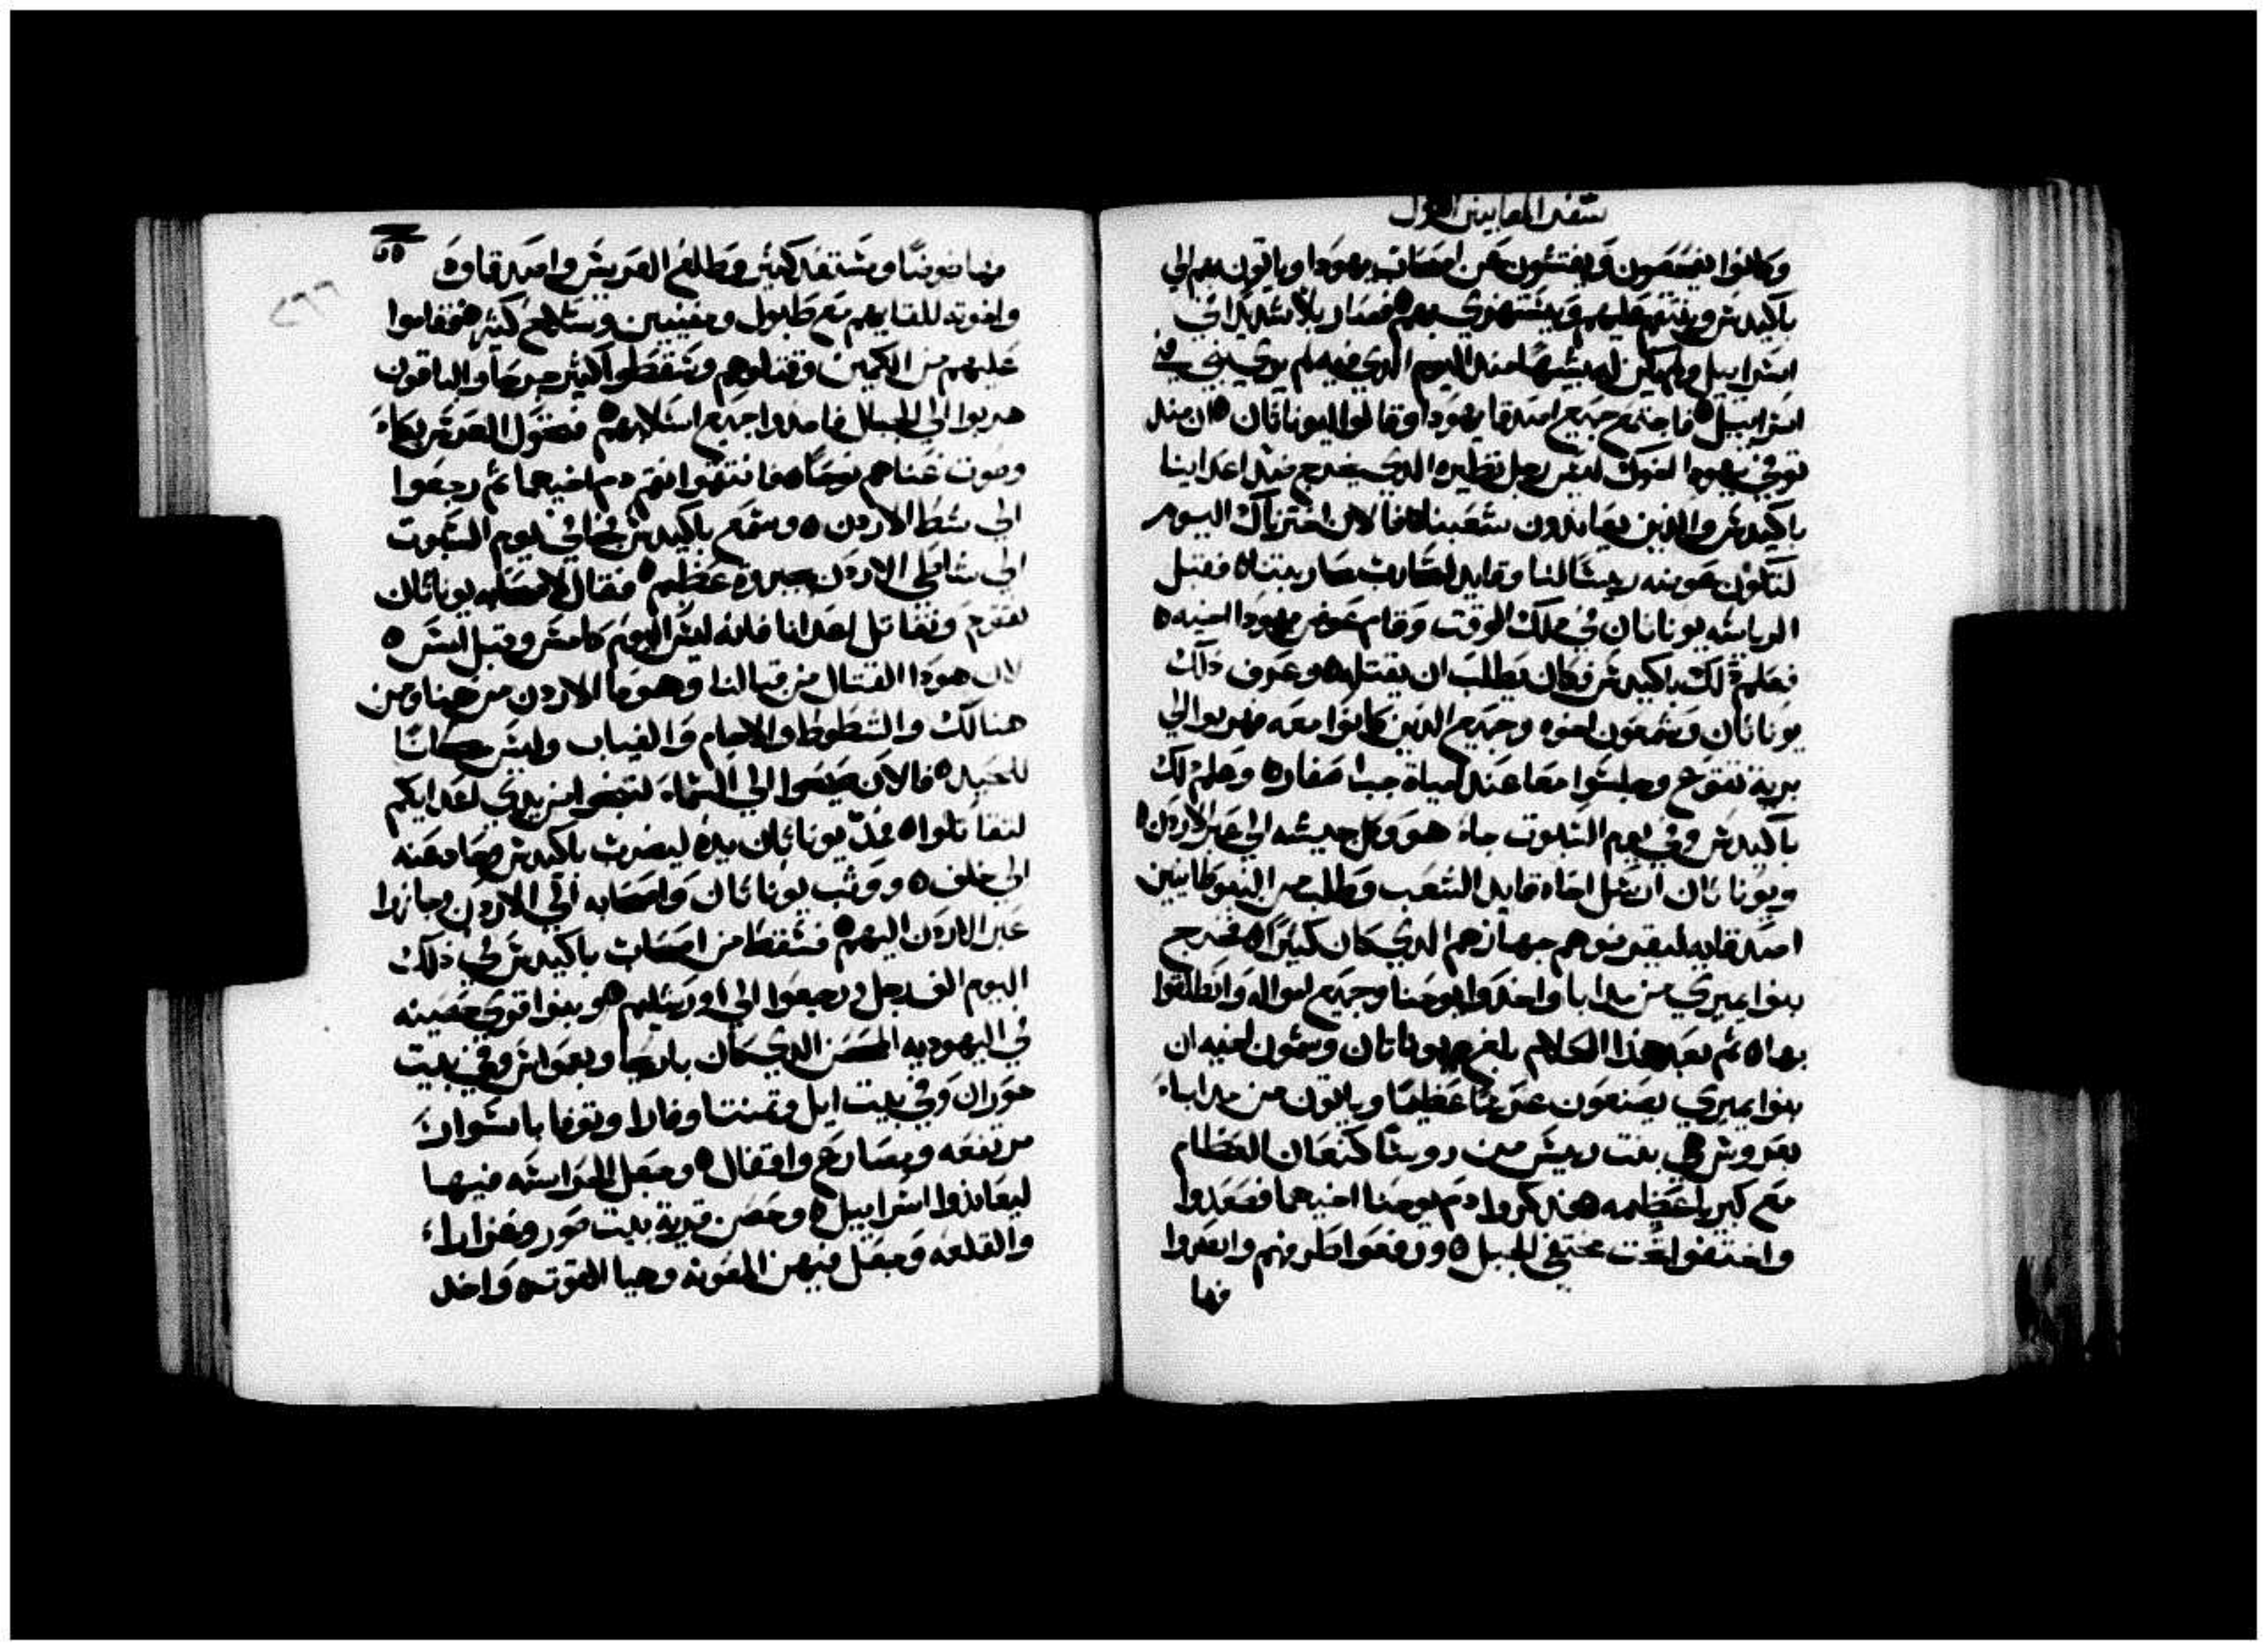 سفر المقابيين الاول
وكانوا يفحصون ويفتشون عن اصحاب يهودا وياتون بهم الي
باكيدس وينتقم عليهم ويستهزي بهم فصار بلاء شديدا في
اسراييل ولم يكن له شبها منذ اليوم الدي فيه لم يري نبي في
اسراييل فاجتمع جميع اصدقا يهودا وقالوا ليوناتان ان منذ
توفي يهودا اخوك ليس رجل نظيره الدي يخرج ضد اعداينا
باكيدس والذين يعاندون شعبنا فالان اخترناك اليوم
لتكون عوضه رييسا لنا وقايد لتحارب محاربتنا فقبل
الرياسه يوناتان في ذلك الوقت وقام عوض يهودا اخيه
فعلم ذلك باكيدس فكان يطلب ان يقتله وعرف ذلك
يوناتان وسمعون اخوه وجميع الذين كانوا معه فهربوا الي
برية تقوع وجلسوا معا عند مياة جب اصفار وعلم ذلك
باكيدس وفي يوم السبوت جاء هو وكل جيشه الي عبر الاردن
ويوناتان ارسل اخاه قايد الشعب وطلب من النبوطايين
اصدقايه ليقرضوهم جهازهم الدي كان كثيرا فخرج
بنوا يمبري من مدابا واخدوا يوحنا وجميع امواله وانطلقوا
بها ثم بعد هذا الكلام بلغ يوناتان وسمعون اخيه ان
بنوا يمبري يصنعون عرسا عظيما وياتون من مدابا
بعروس هي بنت رييس من روسا كنعان العظام
مع كبريا عظيمه فتدكروا دم يوحنا اخيهما فصعدوا
واختفوا تحت مختفي الجبل ورفعوا طرفهم وابصروا
فها
فها ضوضا ومستعد كثير وطلع العريس واصدقاوه
واخوته للقايهم مع طبول ومغنيين وسلاح كثير فقاموا
عليهم من الكمين وقتلوهم وسقطوا كثير جرحا والباقون
هربوا الي الجبال فاخدوا جميع اسلابهم فتحول العرس بكاء
وصوت غناهم نوحا فانتقموا نقم دم اخيهما ثم رجعوا
الي شط الاردن وسمع باكيدس فجا في يوم السبوت
الي شاطي الاردن بجبروة عظيم فقال لاصحابه يوناتان
نقوم ونقاتل اعدانا فانه ليس اليوم كامس وقبل امس
لان هودا القتال من قبالنا وهوما الاردن من هنا ومن
هنالك والشطوط والاجام والغياب وليس مكانا
للحيد فالان صيحوا الي السماء لتنجوا من يدي اعدايكم
لتقاتلوا فمد يوناتان يده ليضرب باكيدس فحاد عنه
الي خلف ووثب يوناتان واصحابه الي الاردن وجازوا
عبر الاردن اليهم فسقط من اصحاب باكيدس في ذلك
اليوم الف رجل ورجعوا الي اورشليم وبنوا قري حصينه
في اليهوديه الحصن الدي كان باريحا وبعمواس وفي بيت
حوران وفي بيت ايل وتمنتا وفارا وتوفا باسوار
مرتفعه ومصاريع واقفال وجعل الحراسه فيها
ليعاندوا اسراييل وحصن قرية بيت صور وغزارا
والقلعه وجعل فيهن المعونه وهيا القوته واخد